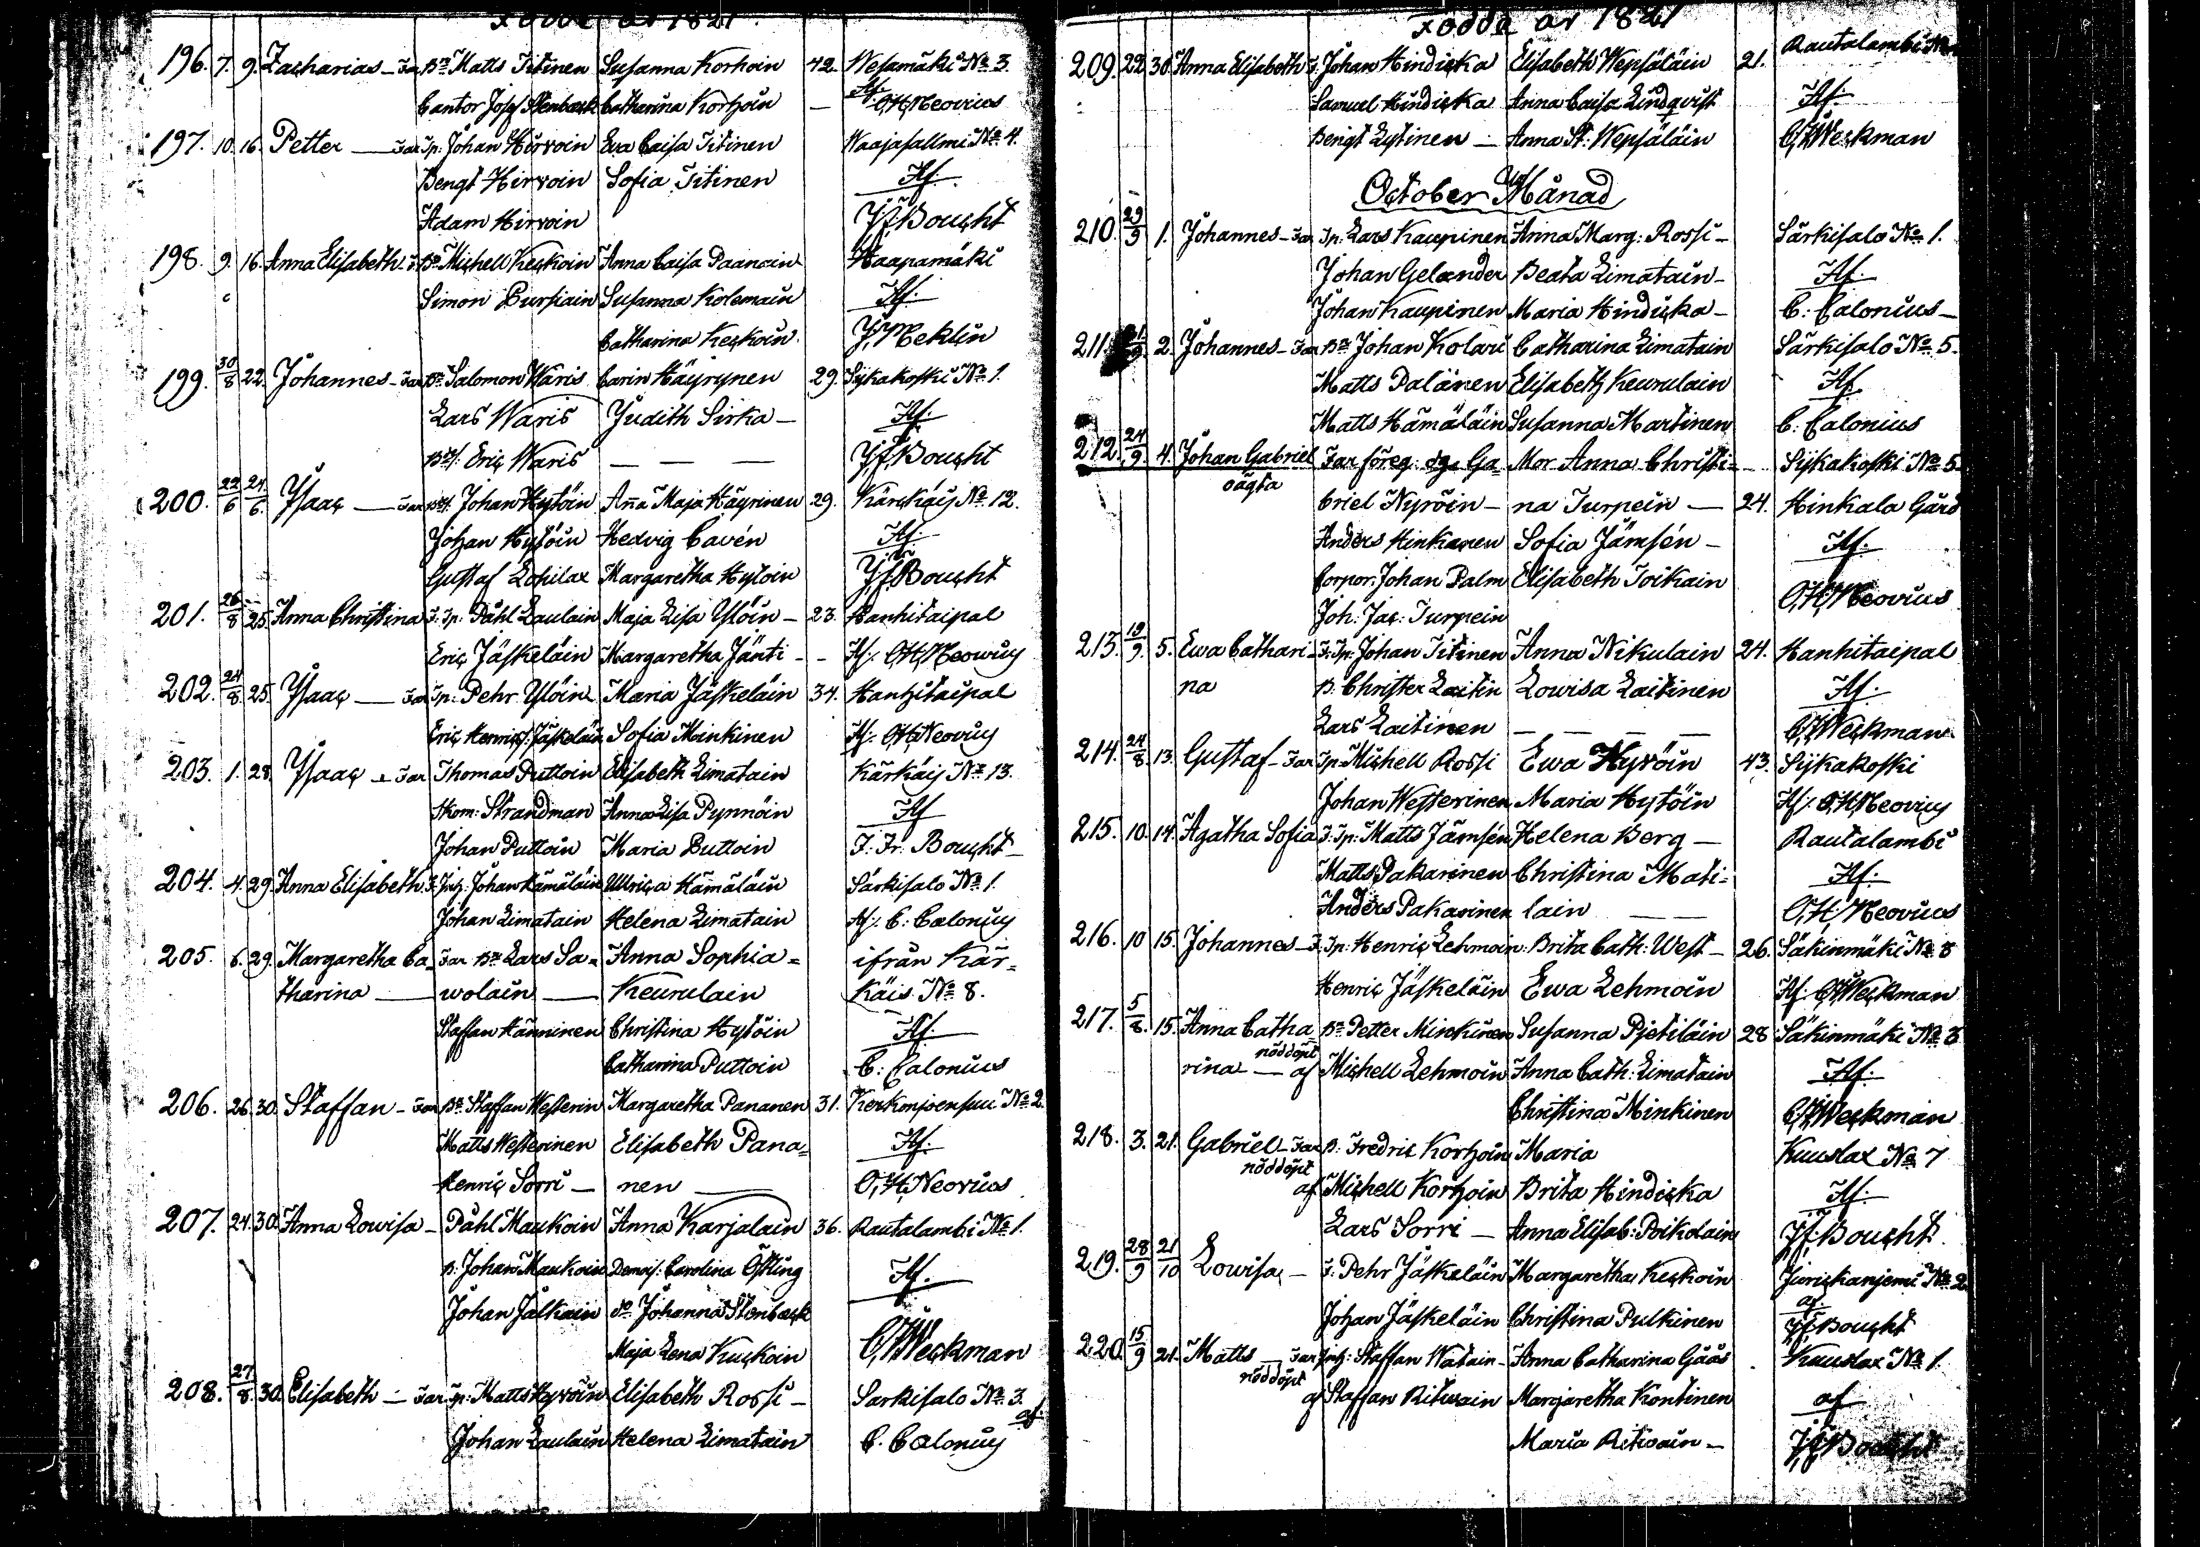 Födde år 1821
196. 7. 9. Zacharias - Far Bn Matts Titinen Susanna Korhoin 42. Wesamäki No 3.
Cantor Josef Stenbæck Catharina Korhoin — Af O,H,Neovius
197. 10. 16. Petter — Far Ip. Johan Hirvoin Eva Caisa Titinen Waajasallmi No 4.
Bengt Hirvoin Sofia Titinen Af.
Adam Hirvoin J,F,Boucht
198. 9. 16. Anna Elisabeth - F. Bn Michell Keckoin Anna Caisa Paanain Haapamäki
Simon Pursiain Susanna Kolemain Af.
Catharina Keckoin. J,Meklin
199. 30/8 22. Johannes - Far Bn Salomon Waris Carin Häyrynen 29. Sijkakoski No 1.
Lars Waris Judith Sirka — Af.
Eric Waris — — — J,F,Boucht
200. 22/6 24/6 Ysaac — Far Johan Hytöin Anna Maja Häyrinen 29. Kärckäij No 12.
Johan Hytöin Hedvig Cavén Af.
Gustaf Lohilax Margaretha Hytöin J,F,Boucht
201. 26/8 25. Anna Christina F. Ip. Påhl Laulain Maja Lisa Ylöin — 23. Hanhitaipal
Eric Jäskeläin Margaretha Jänti - - Af. O,H,Neovius
202. 24/8 25. Ysaac — Far Ip. Pehr Ylöin Maria Jäskeläin 34. Hanhitaipal
Eric Henrics. Jäskeläin Sofia Minkinen Af. O,H,Neovius
203. 1. 28. Ysaac - Far Thomas Puttoin Elisabeth Limatain Kärkäij No 13.
Skom. Strandman Anna Lisa Pynnöin Af
Johan Puttoin Maria Puttoin J. Fr. Boucht
204. 4. 29. Anna Elisabeth F. Inh. Johan Hämäläin Ullrica Hämäläin Särkisalo No 1.
Johan Limatain Helena Limatain Af. C. Calonius
205. 6. 29. Margaretha Ca= Far Bn Lars Sa= Anna Sophia = ifrån Kär=
tharina — wolain — Keurulain käis No 8.
Staffan Hänninen Christina Hytöin Af.
Catharina Puttoin C. Calonius
206. 26. 30. Staffan - Far Bn Staffan Westerin Margaretha Pananen 31. Kerkonjoensuu No 2.
Matts Westerinen Elisabeth Pana= Af.
Henric Sorri — nen — O,H,Neovius
207. 24. 30. Anna Lowisa - Påhl Maukoin Anna Karjalain 36. Rautalambi No 1.
B. Johan Maukoin Demois. Carolina Östling Af.
Johan Jälkain do Johanna Stenbæck
Maja Lena Kuckoin C,F,Weckman
208. 27/8 30. Elisabeth — Far Ip. Matts Hyvöin Elisabeth Rossi — Särkisalo No 3.
Johan Laulain Helena Limatain af. C. Calonius
Födde år 1821
209. 22 30 Anna Elisabeth F. Johan Hindicka Elisabeth Wepsäläin 21. Rautalambi No
Samuel Hindicka Anna Caisa Lindqvist Af.
Bengt Lytinen — Anna St: Wepsäläin C,F,Weckman
October Månad
210. 29/9 1. Johannes - Far Ip. Lars Kaupinen Anna Marg: Rossi — Särkisalo No 1.
Johan Gelander Beata Limatain — Af.
Johan Kaupinen Maria Hindicka — C: Calonius —
211. 2. Johannes - Far Bn Johan Kolari Catharina Limatain Särkisalo No 5.
Matts Palänen Elisabeth Keurulain Af.
Matts Hämäläin Susanna Martinen C. Calonius
212. 24/9 4. Johan Gabriel Far föreg: Ga= Mor Anna Christi= Sijkakoski No 5
oägta briel Nyröin — na Turpein — 24. Hinkala Gård
Anders Hinkanen Sofia Jämsén — Af.
Corpor. Johan Palm Elisabeth Toikain
Joh: Jac: Turpein O,H,Neovius
213. 19/9 5. Ewa Cathari= F. Ip. Johan Titinen Anna Nikulain 24. Hanhitaipal
na B. Christer Laitin Lowisa Laitinen Af.
Lars Laitinen — — — — C,F,Weckman
214. 24/8 13. Gustaf - Far Ip. Michell Rossi Ewa Hyvöin 43. Sijkakoski
Johan Westerinen Maria Hytöin Af. O,H,Neovius
215. 10 14. Agatha Sofia F. Ip. Matts Jämsén Helena Berg — Rautalambi
Matts Pakarinen Christina Mati= Af.
Anders Pakarinen lain — — O,H,Neovius
216. 10 15. Johannes - F. Ip. Henric Lehmoin. Brita Cath: West — 26. Säkinmäki No 8
Henric Jäskeläin Ewa Lehmoin Af. C,F,Weckman
217. 5/8 15. Anna Catha Bn Petter Minkinen Susanna Pjetiläin 28 Säkinmäki No 3
rina — nöddöpt af Michell Lehmoin Anna Cath: Limatain Af.
Christina Minkinen C,F,Weckman
218. 3. 21. Gabriel - Far B. Fredric Korhoin Maria Kuuslax No 7
nöddöpt af Michell Korhoin Brita Hindicka Af.
Lars Sorri — Anna Elisab: Poikolain J,F,Boucht
219. 28/9 21/10 Lowisa — F. Pehr Jäskeläin Margaretha Keckoin No 2
Johan Jäskeläin Christina Pulkinen af J,F,Boucht
220. 15/9 21. Matts — Far Inh: Staffan Watain - Anna Catharina Gåås. Kuuslax No 1.
nöddöpt af Staffan Ritwain Margaretha Kontinen af
Maria Ritwain — J,F,Boucht